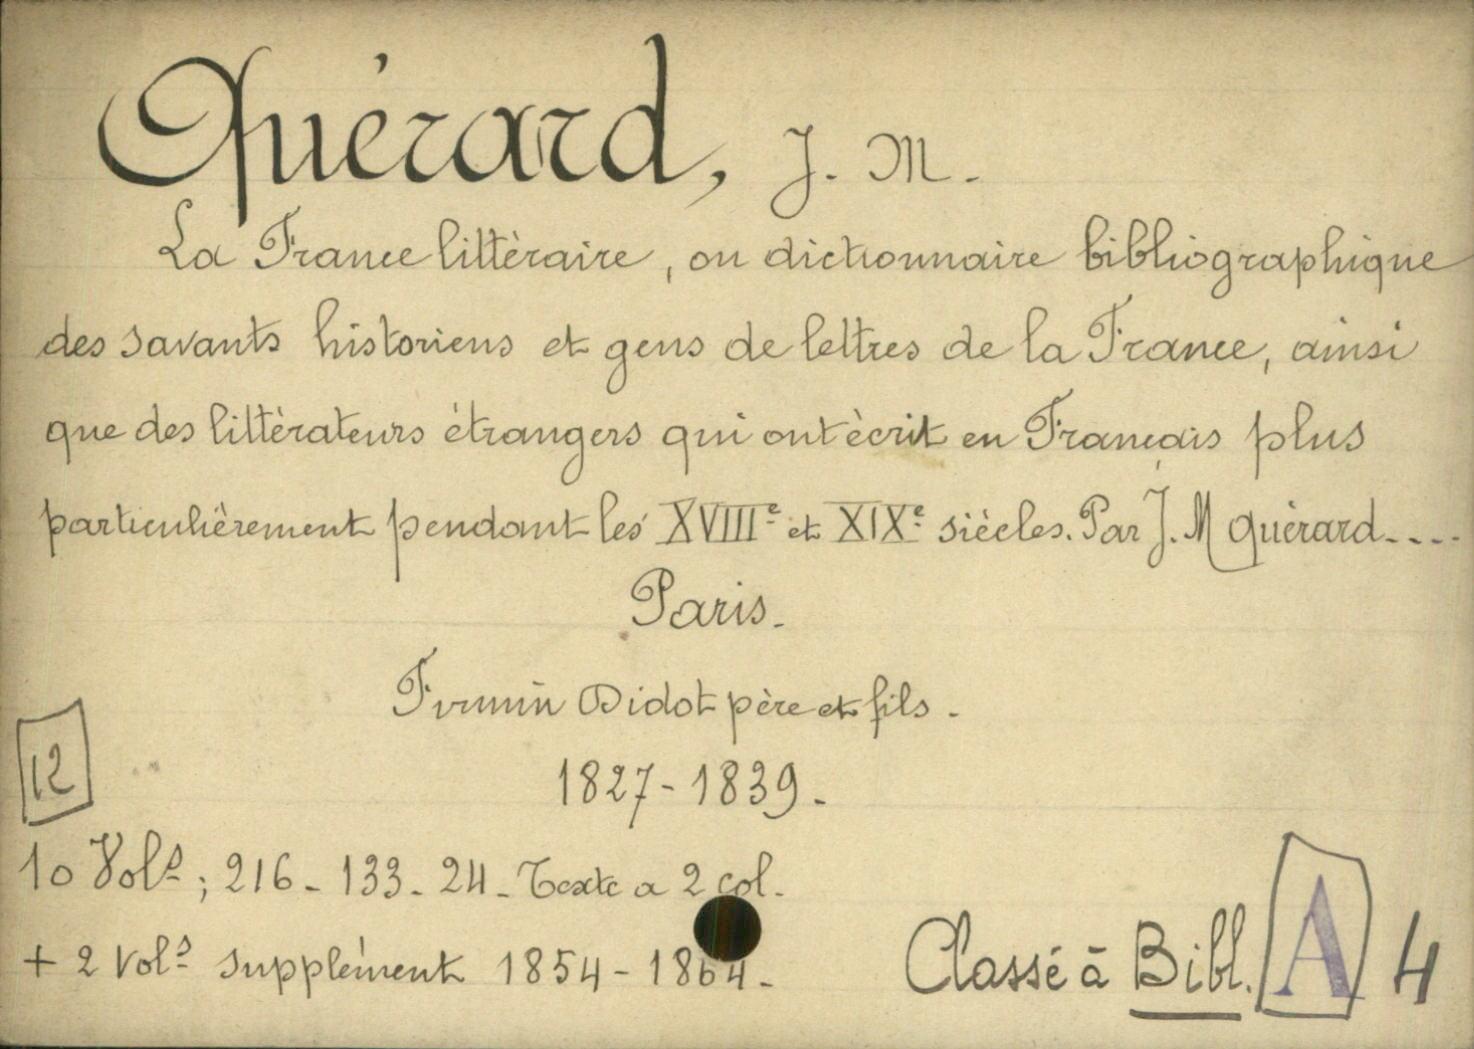 Quérard, J. M.
La France littéraire, ou dictionnaire bibliographique
des savants historiens et gens de lettres de la France, ainsi
que des littérateurs étrangers qui ont écrit en Français plus
particulièrement pendant les XVIIIe et XIXe siècles. Par J. M Quérard....
Paris.
Firmin Didot père et fils.
12
1827-1839.
10 Vols; 216-133-24-Texte a 2 col.
+ 2 Vols supplément 1854-1864.
Classé à Bibl. A 4